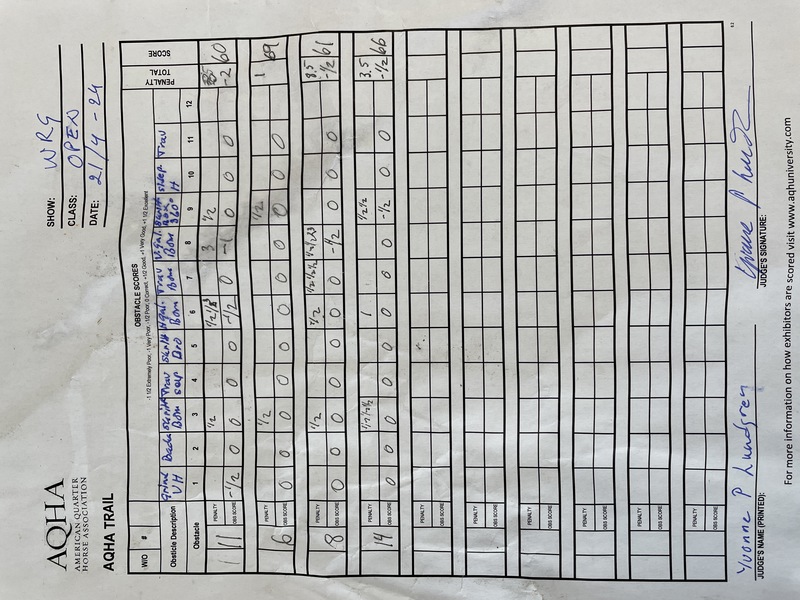 AQHA
AMERICAN QUARTER
HORSE ASSOCIATION
AQHA TRAIL
SHOW: WRG
CLASS: OPEN
DATE: 21/4 - 24
OBSTACLE SCORES
-1 1/2 Extremely Poor, -1 Very Poor, -1/2 Poor, 0 Correct, +1/2 Good, +1 Very Good, +1 1/2 Excellent
W/O #
Obstacle Description
VH Bom Trav Bom Bom Bom 360° H Trav
PENALTY TOTAL SCORE
Obstacle 1 2 3 4 5 6 7 8 9 10 11 12
PENALTY 1/2 3 1/2
11 OBS SCORE -1/2 0 0 0 0 -1/2 0 -1 0 0 0 -2 60
PENALTY 1/2 1/2 1
6 OBS SCORE 0 0 0 0 0 0 0 0 0 0 0 69
PENALTY 1/2 1/2 8,5
8 OBS SCORE 0 0 0 0 0 0 0 -1/2 0 0 0 -1/2 61
PENALTY 1 3.5
14 OBS SCORE 0 0 0 0 0 0 0 0 -1/2 0 0 -1/2 66
PENALTY
OBS SCORE
PENALTY
OBS SCORE
PENALTY
OBS SCORE
PENALTY
OBS SCORE
PENALTY
OBS SCORE
PENALTY
OBS SCORE
Yvonne P Lundgren
JUDGE'S NAME (PRINTED):
JUDGE'S SIGNATURE:
For more information on how exhibitors are scored visit www.aqhuniversity.com